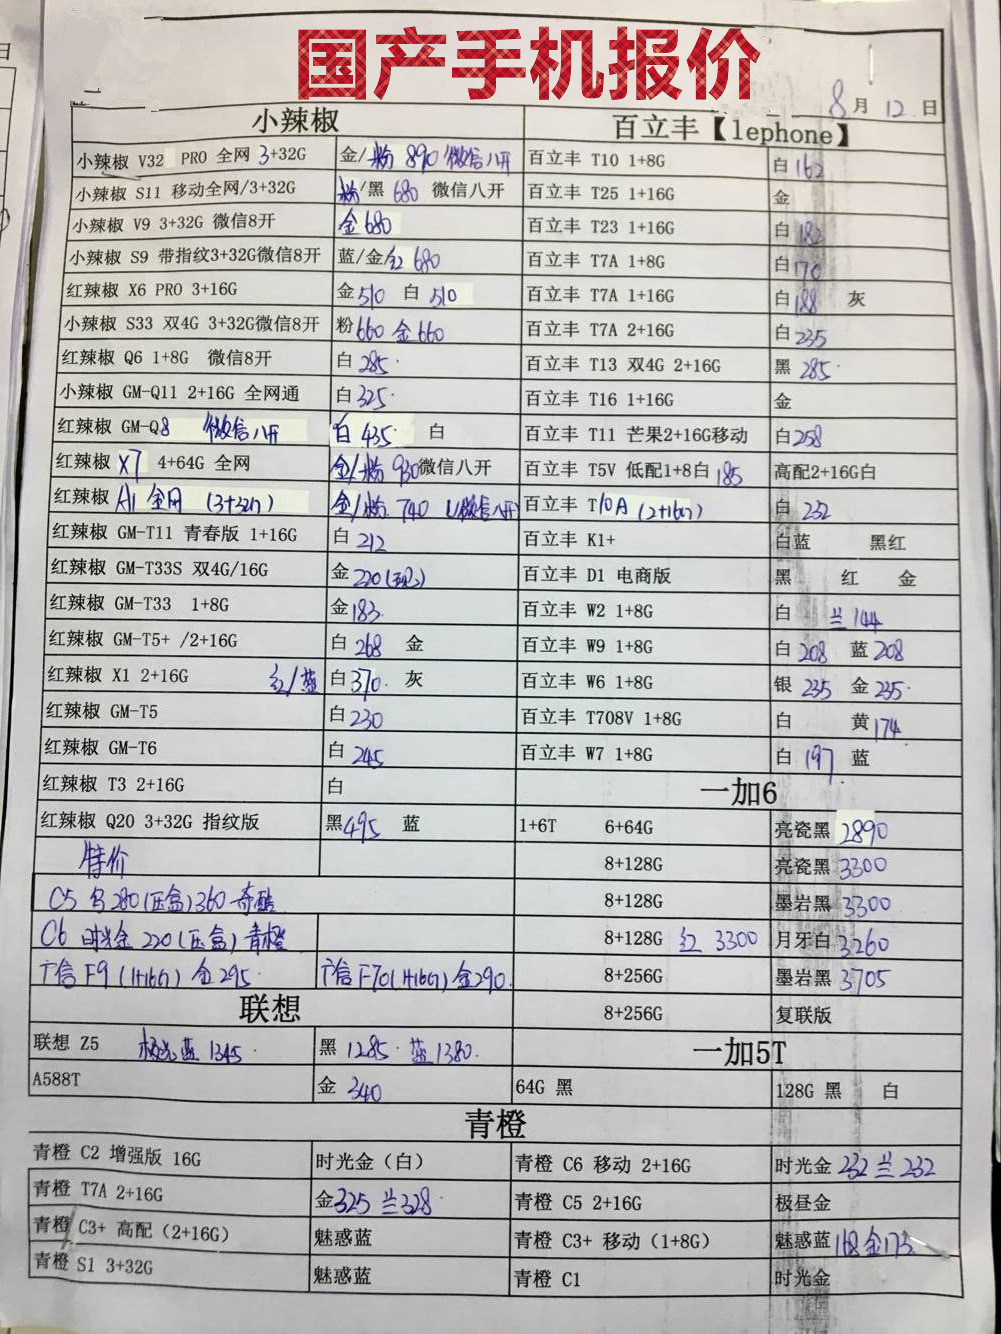 国产手机报价
8月12日
小辣椒 百立丰【lephone】
小辣椒 V32 PRO 全网 3+32G 金/粉 890 微信八开 百立丰 T10 1+8G 白162
小辣椒 S11 移动全网/3+32G 粉/黑 680 微信八开 百立丰 T25 1+16G 金
小辣椒 V9 3+32G 微信8开 金680 百立丰 T23 1+16G 白182
小辣椒 S9 带指纹3+32G微信8开 蓝/金/红 680 百立丰 T7A 1+8G 白170
红辣椒 X6 PRO 3+16G 金510 白 510 百立丰 T7A 1+16G 白188 灰
小辣椒 S33 双4G 3+32G微信8开 粉660 金660 百立丰 T7A 2+16G 白235
红辣椒 Q6 1+8G 微信8开 白 285 百立丰 T13 双4G 2+16G 黑 285
小辣椒 GM-Q11 2+16G 全网通 白325 百立丰 T16 1+16G 金
红辣椒 GM-Q8 微信八开 白 435 白 百立丰 T11 芒果2+16G移动 白258
红辣椒 X7 4+64G 全网 金/粉 930微信八开 百立丰 T5V 低配1+8白 185 高配2+16G白
红辣椒 A1 全网 (3+32G) 金/粉 740 微信八开 百立丰 T10A (2+16G) 白 232
红辣椒 GM-T11 青春版 1+16G 白 212 百立丰 K1+ 白蓝 黑红
红辣椒 GM-T33S 双4G/16G 金 220 百立丰 D1 电商版 黑 红 金
红辣椒 GM-T33 1+8G 金183 百立丰 W2 1+8G 白 兰144
红辣椒 GM-T5+ /2+16G 白 268 金 百立丰 W9 1+8G 白 208 蓝 208
红辣椒 X1 2+16G 红/蓝 白370 灰 百立丰 W6 1+8G 银 235 金 235
红辣椒 GM-T5 白230 百立丰 T708V 1+8G 白 黄174
红辣椒 GM-T6 白 245 百立丰 W7 1+8G 白 197 蓝
红辣椒 T3 2+16G 白 一加6
红辣椒 Q20 3+32G 指纹版 黑495 蓝 1+6T 6+64G 亮瓷黑 2890
特价 8+128G 亮瓷黑 3300
C5 280(压盒)360奇酷 8+128G 墨岩黑 3300
C6 时光金 220(压盒)青橙 8+128G 红 3300 月牙白3260
广信F9(1+16G)金295 广信F70(1+16G)金290 8+256G 墨岩黑 3705
联想 8+256G 复联版
联想 Z5 极光蓝 1345 黑 1285 蓝1380 一加5T
A588T 金 340 64G 黑 128G 黑 白
青橙
青橙 C2 增强版 16G 时光金（白） 青橙 C6 移动 2+16G 时光金 232 兰 232
青橙 T7A 2+16G 金325 兰328 青橙 C5 2+16G 极昼金
青橙 C3+ 高配（2+16G） 魅惑蓝 青橙 C3+ 移动（1+8G） 魅惑蓝 168金173
青橙 S1 3+32G 魅惑蓝 青橙 C1 时光金